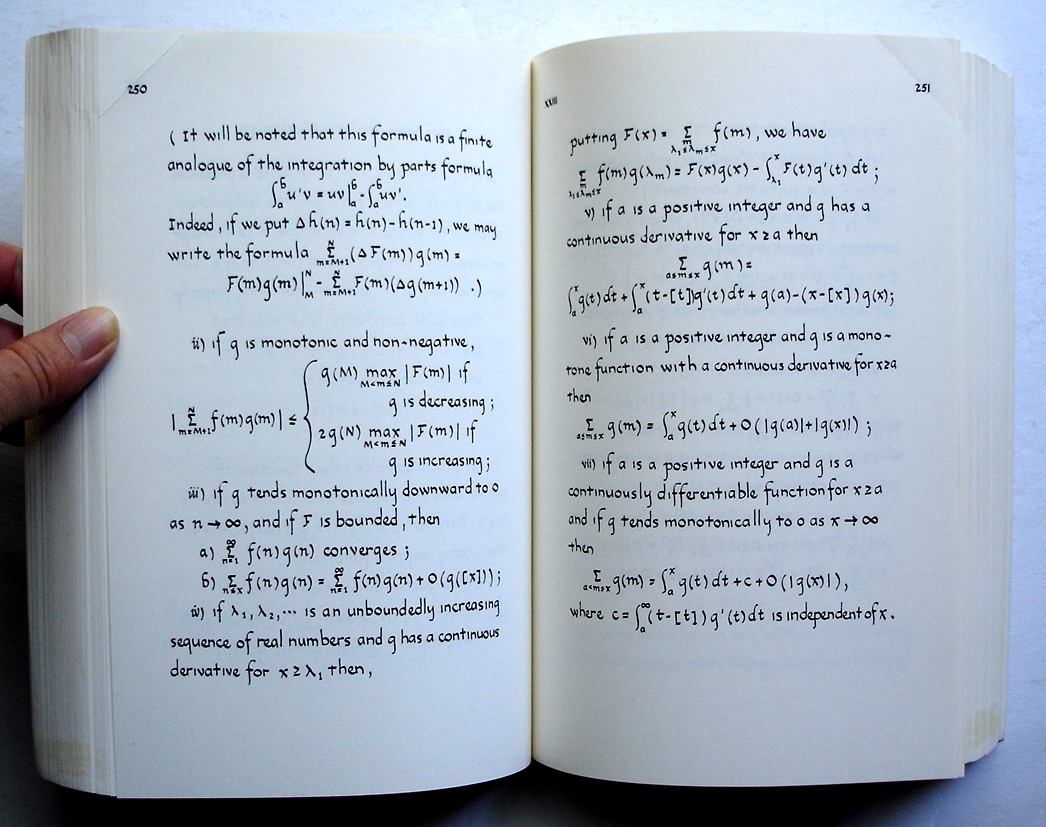 250
( It will be noted that this formula is a finite
analogue of the integration by parts formula
∫_a^b u'v = uv|_a^b - ∫_a^b uv'.
Indeed, if we put Δh(n) = h(n)-h(n-1), we may
write the formula Σ_{m=M+1}^N (ΔF(m))g(m) =
F(m)g(m)|_M^N - Σ_{m=M+1}^N F(m)(Δg(m+1)) .)
ii) if g is monotonic and non-negative,
|Σ_{m=M+1}^N f(m)g(m)| ≤ { g(M) max_{M<m≤N} |F(m)| if
g is decreasing;
2g(N) max_{M<m≤N} |F(m)| if
g is increasing;
iii) if g tends monotonically downward to 0
as n → ∞, and if F is bounded, then
a) Σ_{n=1}^∞ f(n)g(n) converges;
b) Σ_{n≤x} f(n)g(n) = Σ_{n=1}^∞ f(n)g(n) + O(g([x]));
iv) if λ₁, λ₂, ... is an unboundedly increasing
sequence of real numbers and g has a continuous
derivative for x ≥ λ₁ then,
XXIII
251
putting F(x) = Σ_{m, λ₁≤λ_m≤x} f(m), we have
Σ_{m, λ₁≤λ_m≤x} f(m)g(λ_m) = F(x)g(x) - ∫_{λ₁}^x F(t)g'(t) dt;
v) if a is a positive integer and g has a
continuous derivative for x ≥ a then
Σ_{a≤m≤x} g(m) =
∫_a^x g(t)dt + ∫_a^x (t-[t])g'(t)dt + g(a)-(x-[x])g(x);
vi) if a is a positive integer and g is a mono-
tone function with a continuous derivative for x≥a
then
Σ_{a≤m≤x} g(m) = ∫_a^x g(t)dt + O(|g(a)|+|g(x)|) ;
vii) if a is a positive integer and g is a
continuously differentiable function for x ≥ a
and if g tends monotonically to 0 as x → ∞
then
Σ_{a<m≤x} g(m) = ∫_a^x g(t)dt + c + O(|g(x)|),
where c = ∫_a^∞ (t-[t])g'(t)dt is independent of x.